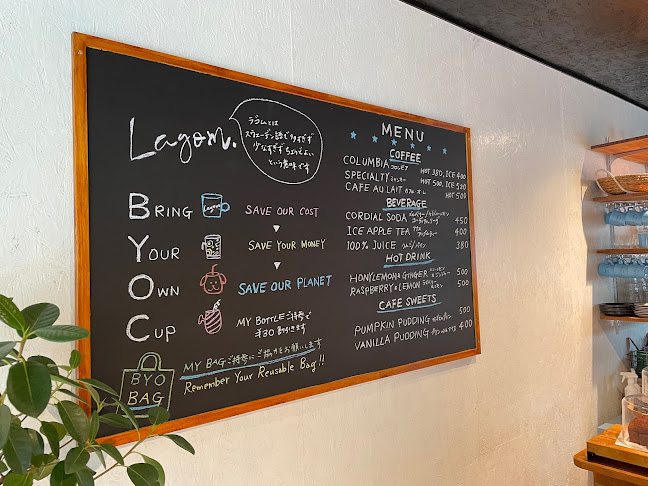 Lagom.
ラゴムとは
スウェーデン語で多すぎず
少なすぎず ちょうどよい
という意味です
BRING
SAVE OUR COST
YOUR
SAVE YOUR MONEY
OWN
SAVE OUR PLANET
CUP
MY BOTTLEご持参で
¥20 割引きます
BYO
BAG
MY BAGご持参にご協力をお願いします
Remember Your Reusable Bag!!
MENU
COFFEE
COLUMBIA コロンビア HOT 380, ICE 400
SPECIALTY HOT 500, ICE 520
CAFE AU LAIT カフェ・オ・レ HOT 500
BEVERAGE
CORDIAL SODA 450
ICE APPLE TEA 400
100% JUICE 380
HOT DRINK
HONEYLEMON & GINGER 500
RASPBERRY & LEMON 500
CAFE SWEETS
PUMPKIN PUDDING 500
VANILLA PUDDING 400